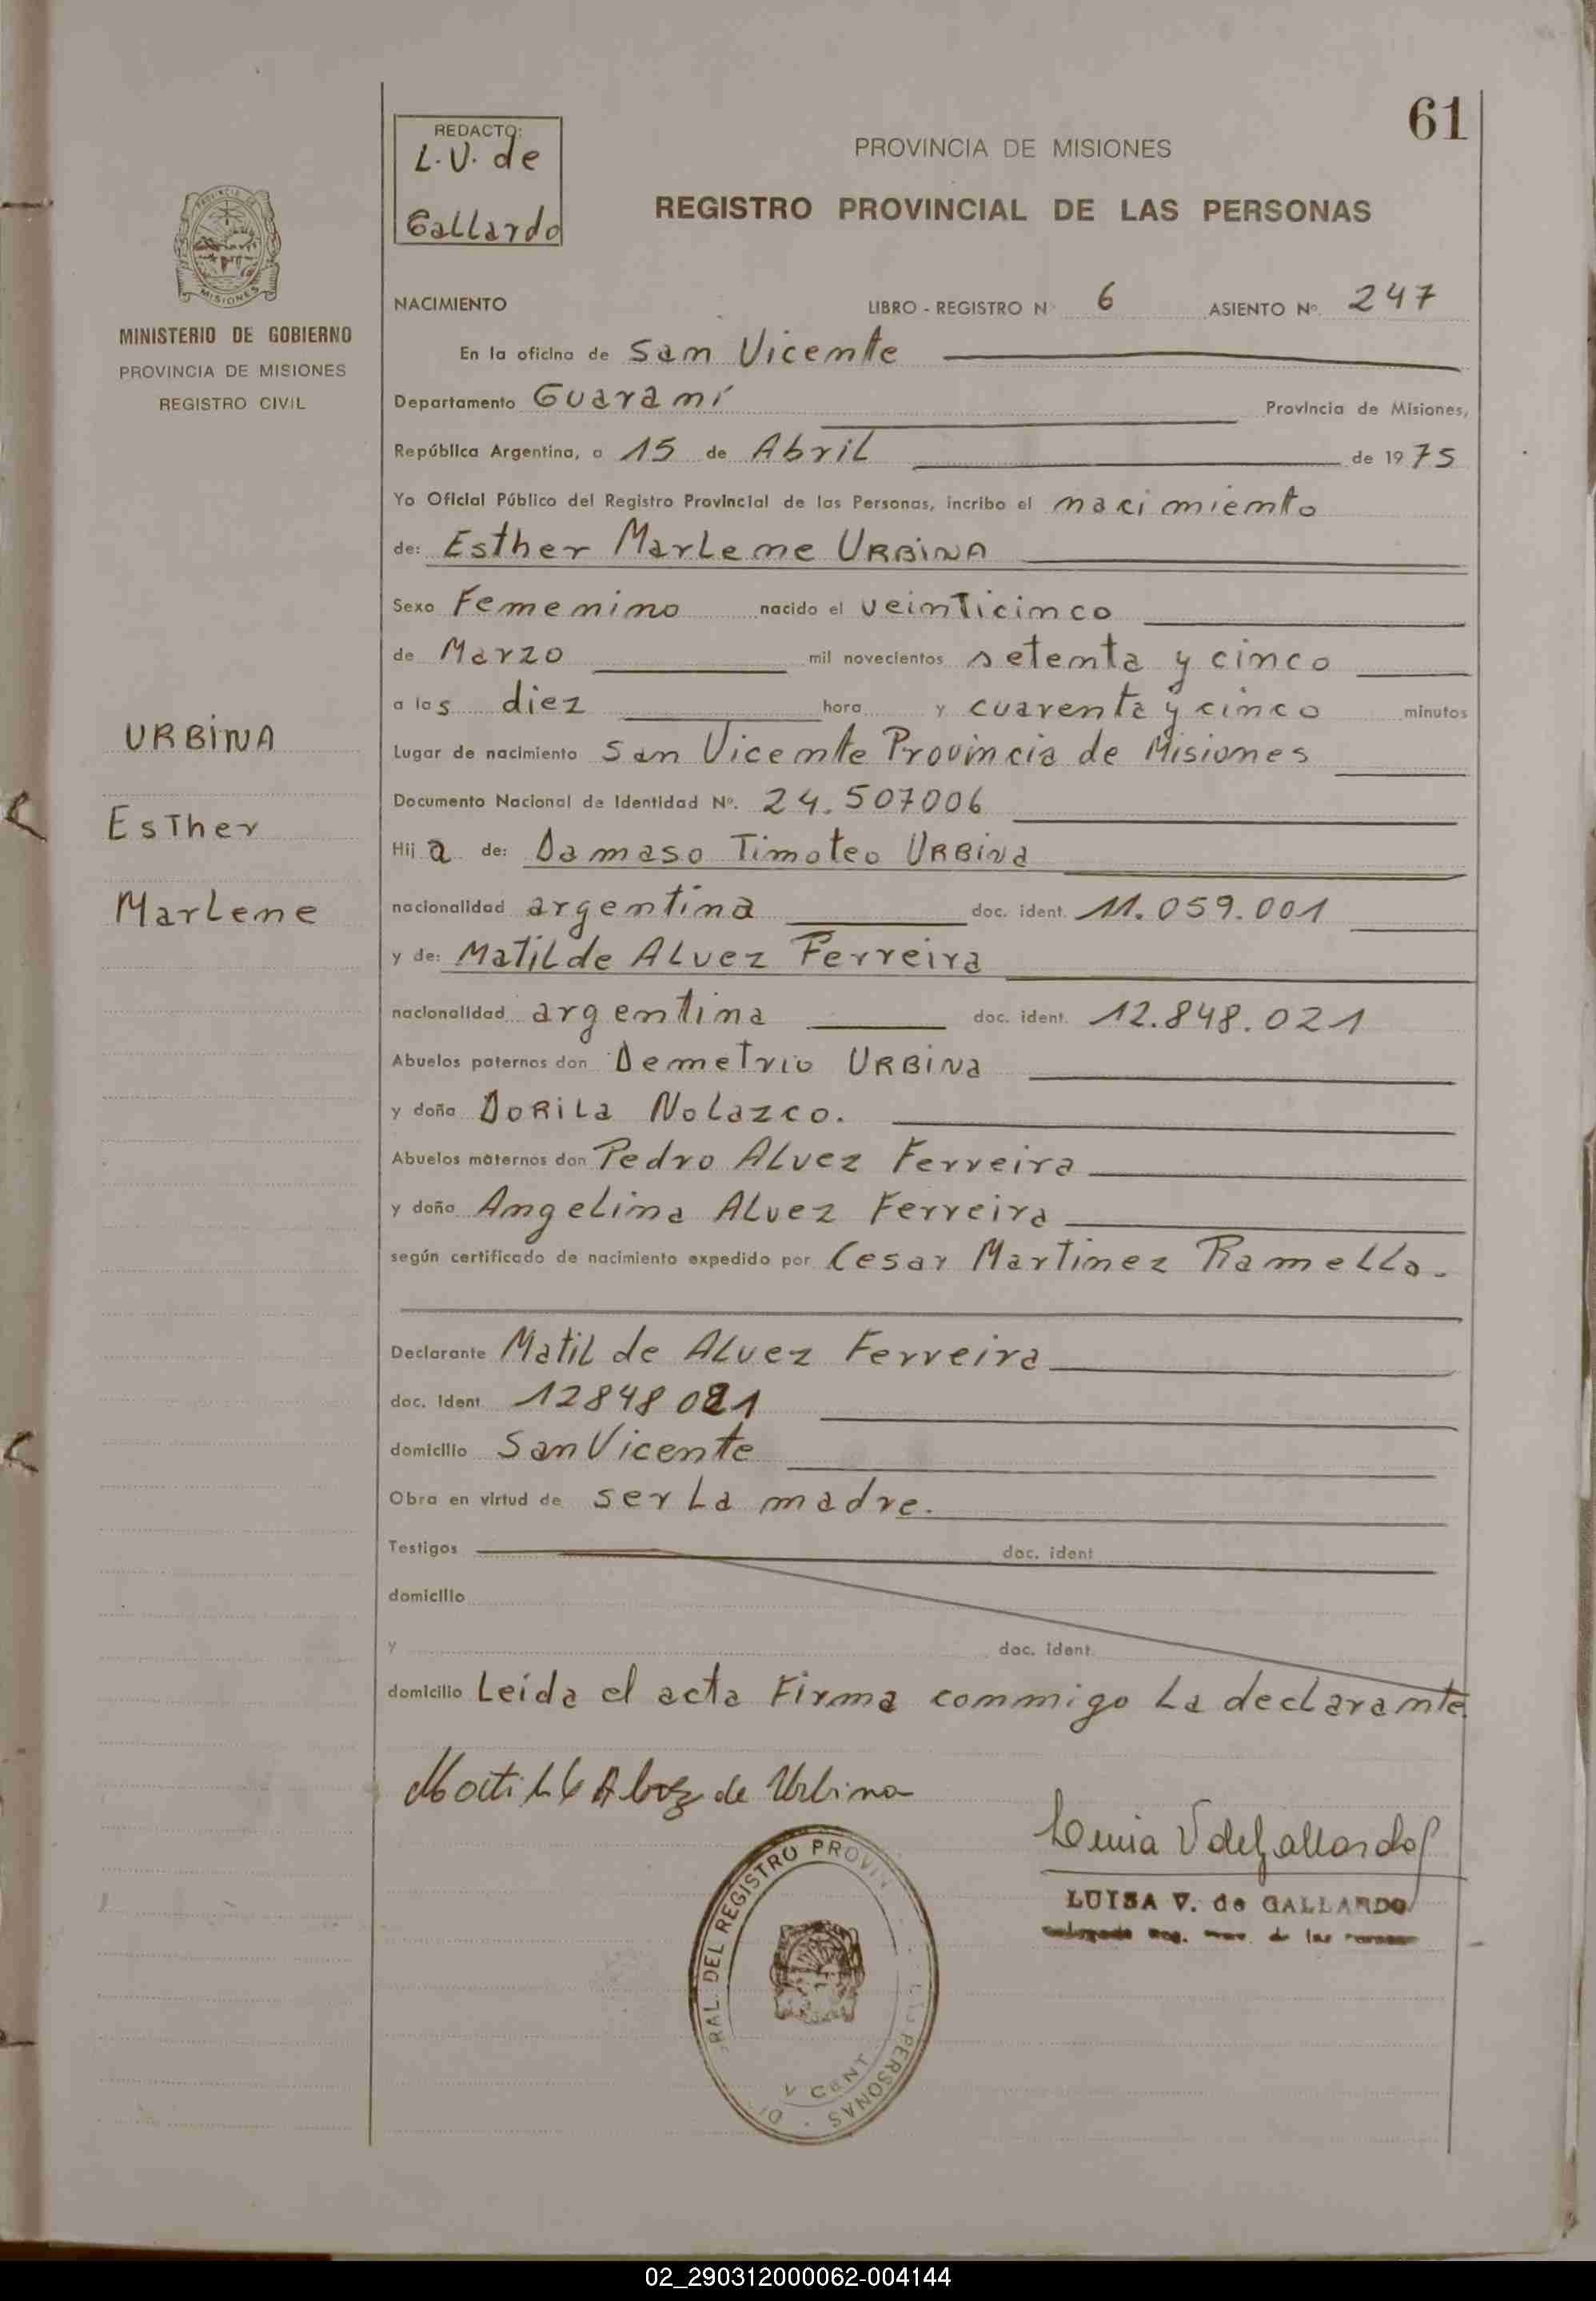 61
REDACTO:
L.V. de
Gallardo
PROVINCIA DE MISIONES
REGISTRO PROVINCIAL DE LAS PERSONAS
MISIONES
MINISTERIO DE GOBIERNO
PROVINCIA DE MISIONES
REGISTRO CIVIL
NACIMIENTO LIBRO - REGISTRO Nº 6 ASIENTO Nº 247
En la oficina de San Vicente
Departamento Guaraní Provincia de Misiones,
República Argentina, a 15 de Abril de 1975
Yo Oficial Público del Registro Provincial de las Personas, incribo el nacimiento
de: Esther Marlene URBINA
Sexo Femenino nacido el veinticinco
de Marzo mil novecientos setenta y cinco
a las diez hora y cuarenta y cinco minutos
URBINA
Esther
Marlene
Lugar de nacimiento San Vicente Provincia de Misiones
Documento Nacional de Identidad Nº. 24.507006
Hija de: Damaso Timoteo URBINA
nacionalidad argentina doc. ident. 11.059.001
y de: Matilde Alvez Ferreira
nacionalidad argentina doc. ident. 12.848.021
Abuelos paternos don Demetrio URBINA
y doña DORILA Nolazco.
Abuelos maternos don Pedro Alvez Ferreira
y doña Angelina Alvez Ferreira
según certificado de nacimiento expedido por Cesar Martinez Ramello.
Declarante Matilde Alvez Ferreira
doc. Ident 12848021
domicilio San Vicente
Obra en virtud de ser la madre.
Testigos doc. ident
domicilio
y doc. ident.
domicilio Leída el acta Firma conmigo La declarante
Matilde Alvez de Urbina
Luisa V de Gallardo
LUISA V. de GALLARDO
de las
RAL. DEL REGISTRO PROVIN
PERSONAS
02_290312000062-004144